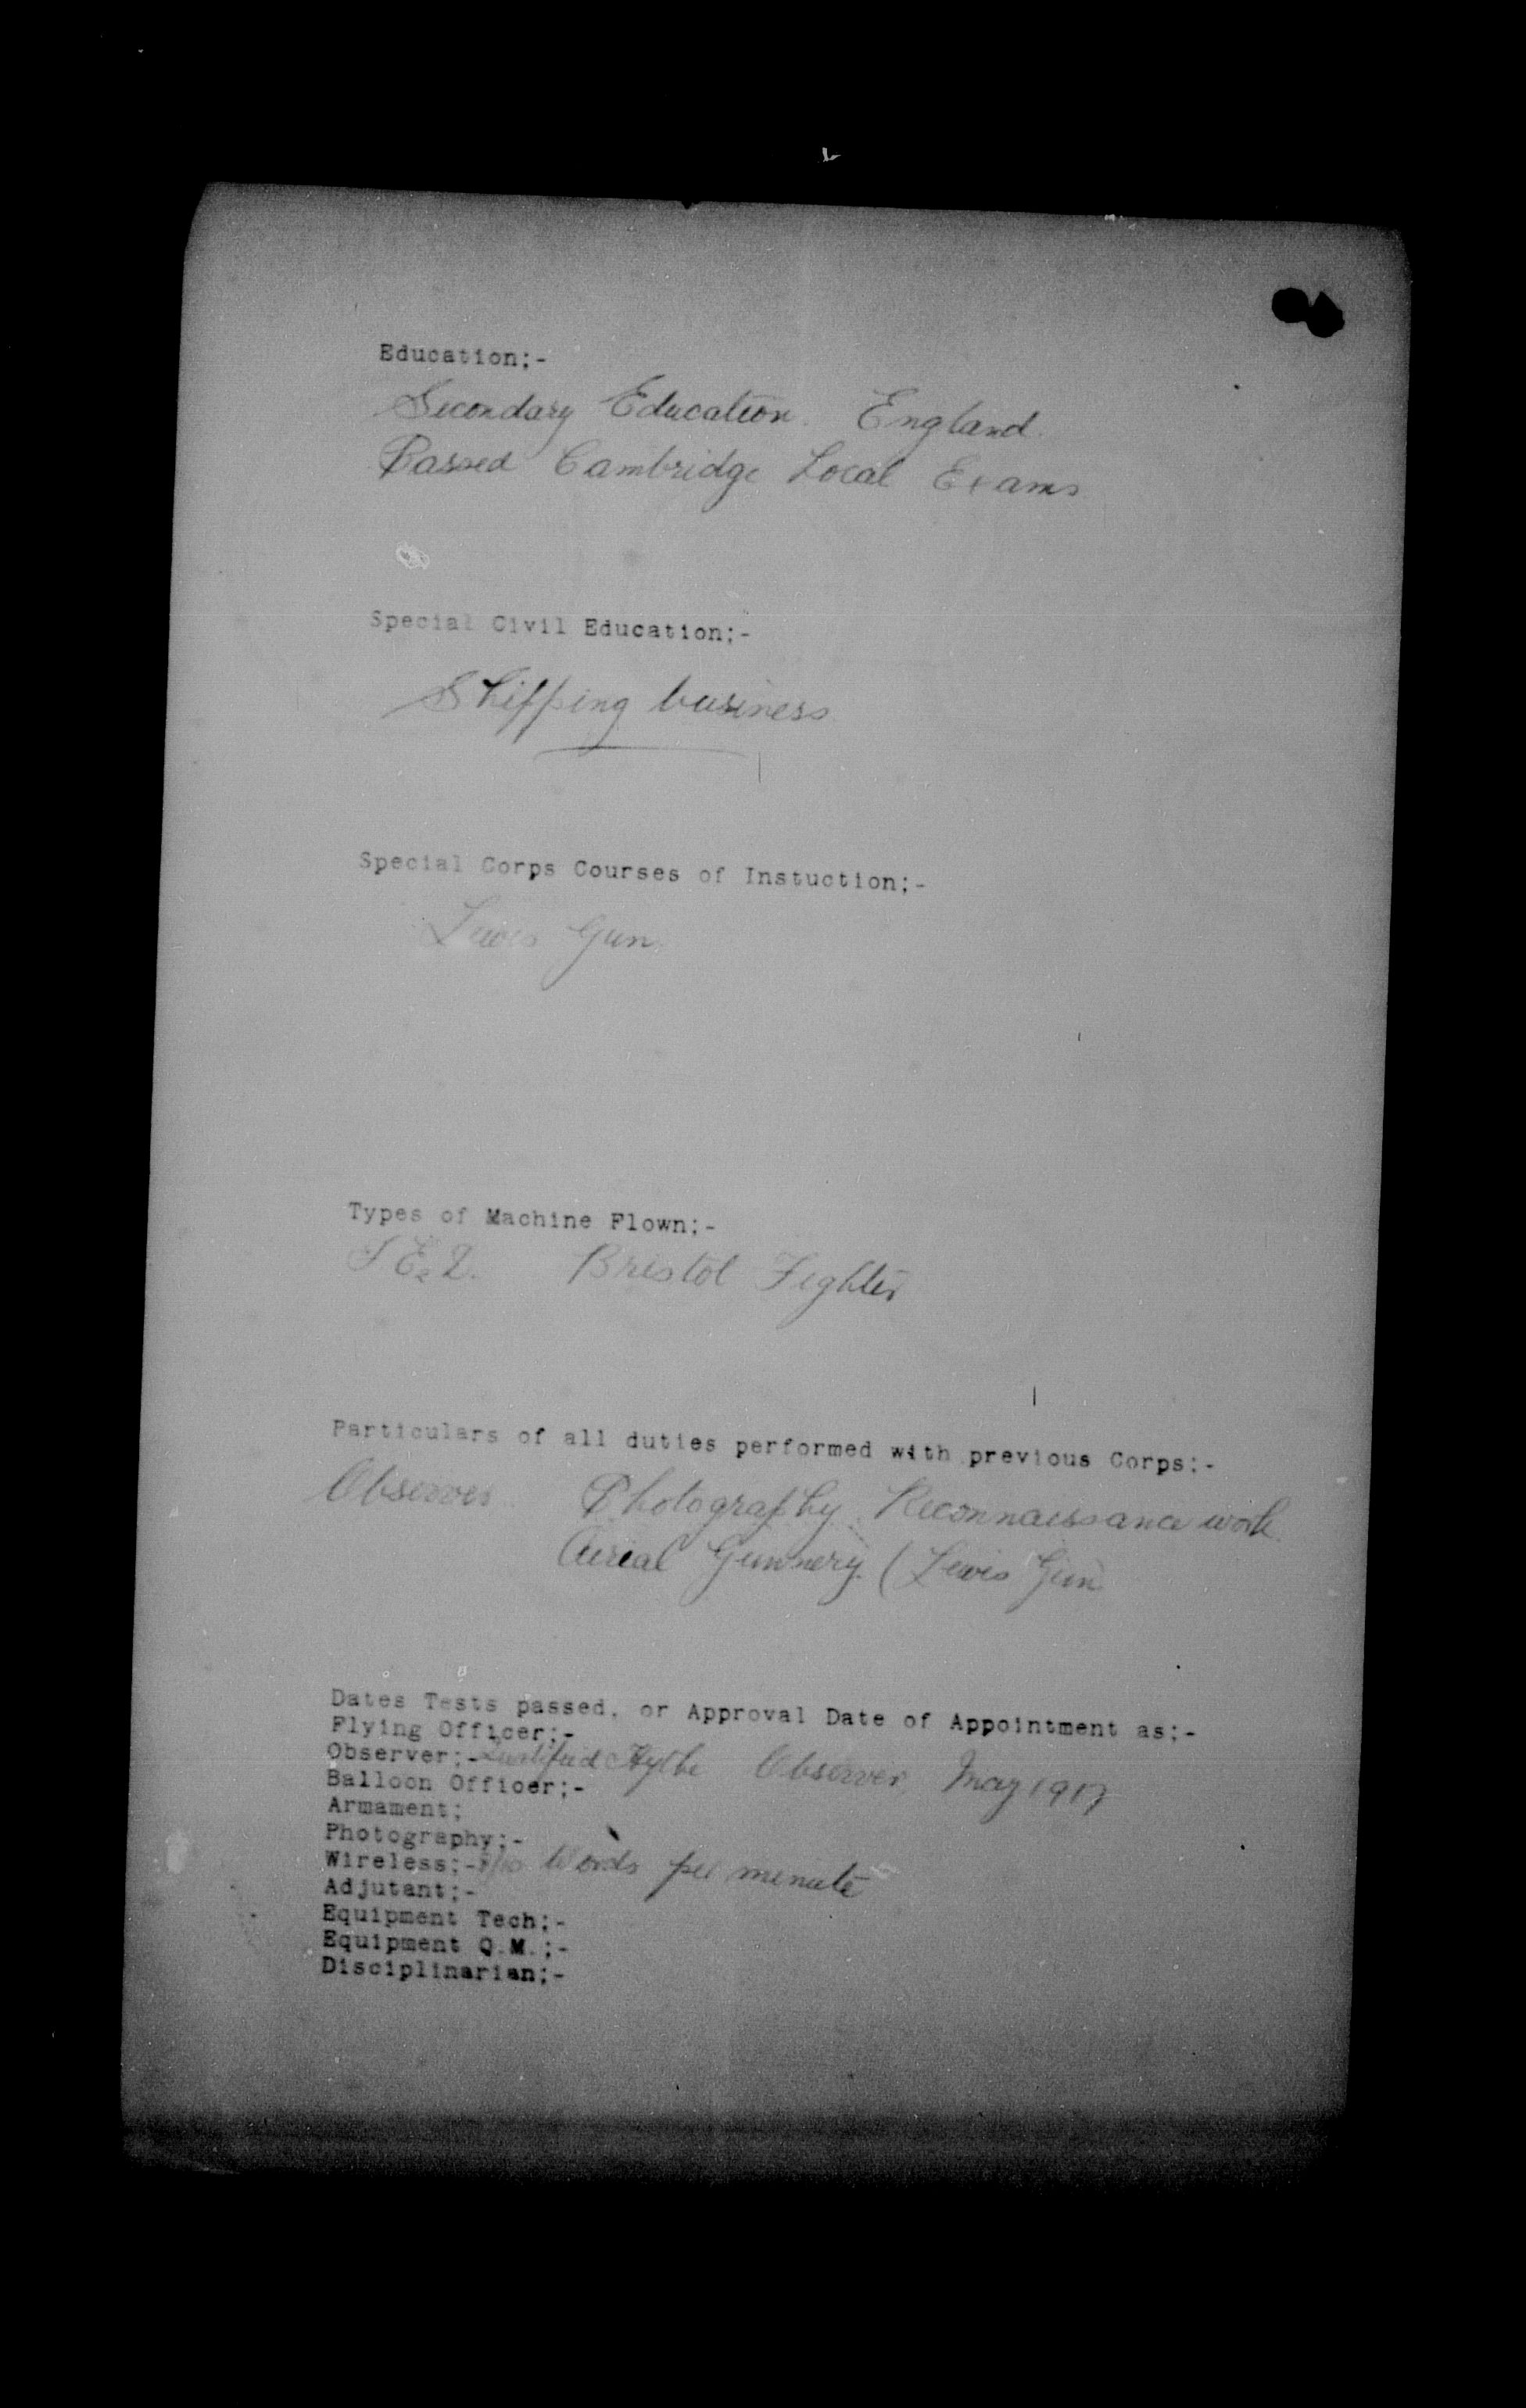 Education;-
Secondary Education. England.
Passed Cambridge Local Exams
Special Civil Education;-
Shipping business
Special Corps Courses of Instuction;-
Lewis Gun.
Types of Machine Flown;-
Bristol Fighter
Particulars of all duties performed with previous Corps;-
Observer. Photography. Reconnaissance work.
Aerial Gunnery. (Lewis Gun
Dates Tests passed, or Approval Date of Appointment as;-
Flying Officer;-
Observer;- Qualified Hythe Observer. May 1917
Balloon Officer;-
Armament;
Photography;-
Wireless;- Words per minute
Adjutant;-
Equipment Tech;-
Equipment Q.M.;-
Disciplinarian;-